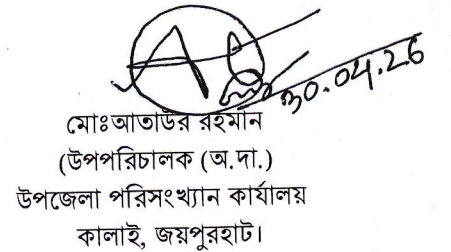 30.04.26
মোঃআতাউর রহমান
(উপপরিচালক (অ.দা.)
উপজেলা পরিসংখ্যান কার্যালয়
কালাই, জয়পুরহাট।